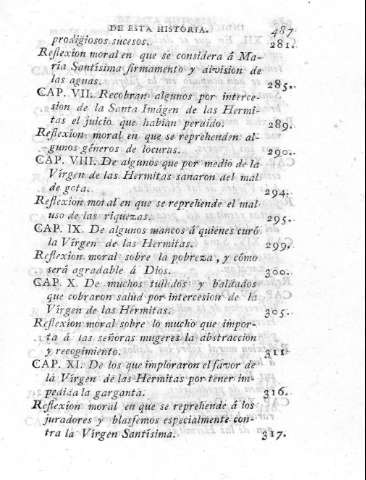 DE ESTA HISTORIA. 487
prodigiosos sucesos. 281.
Reflexion moral en que se considera á Ma-
ría Santísima firmamento y division de
las aguas. 285.
CAP. VII. Recobran algunos por interce-
sion de la Santa Imágen de las Hermi-
tas el juicio que habian perdido. 289.
Reflexion moral en que se reprehenden al-
gunos géneros de locuras. 290.
CAP. VIII. De algunos que por medio de la
Vírgen de las Hermitas sanaron del mal
de gota. 294.
Reflexion moral en que se reprehende el mal
uso de las riquezas. 295.
CAP. IX. De algunos mancos á quienes curó
la Vírgen de las Hermitas. 299.
Reflexion moral sobre la pobreza, y cómo
será agradable á Dios. 300.
CAP. X. De muchos tullidos y baldados
que cobraron salud por intercesion de la
Vírgen de las Hermitas. 305.
Reflexion moral sobre lo mucho que impor-
ta á las señoras mugeres la abstraccion
y recogimiento. 311.
CAP. XI. De los que imploraron el favor de
la Vírgen de las Hermitas por tener im-
pedida la garganta. 316.
Reflexion moral en que se reprehende á los
juradores y blasfemos especialmente con-
tra la Vírgen Santísima. 317.